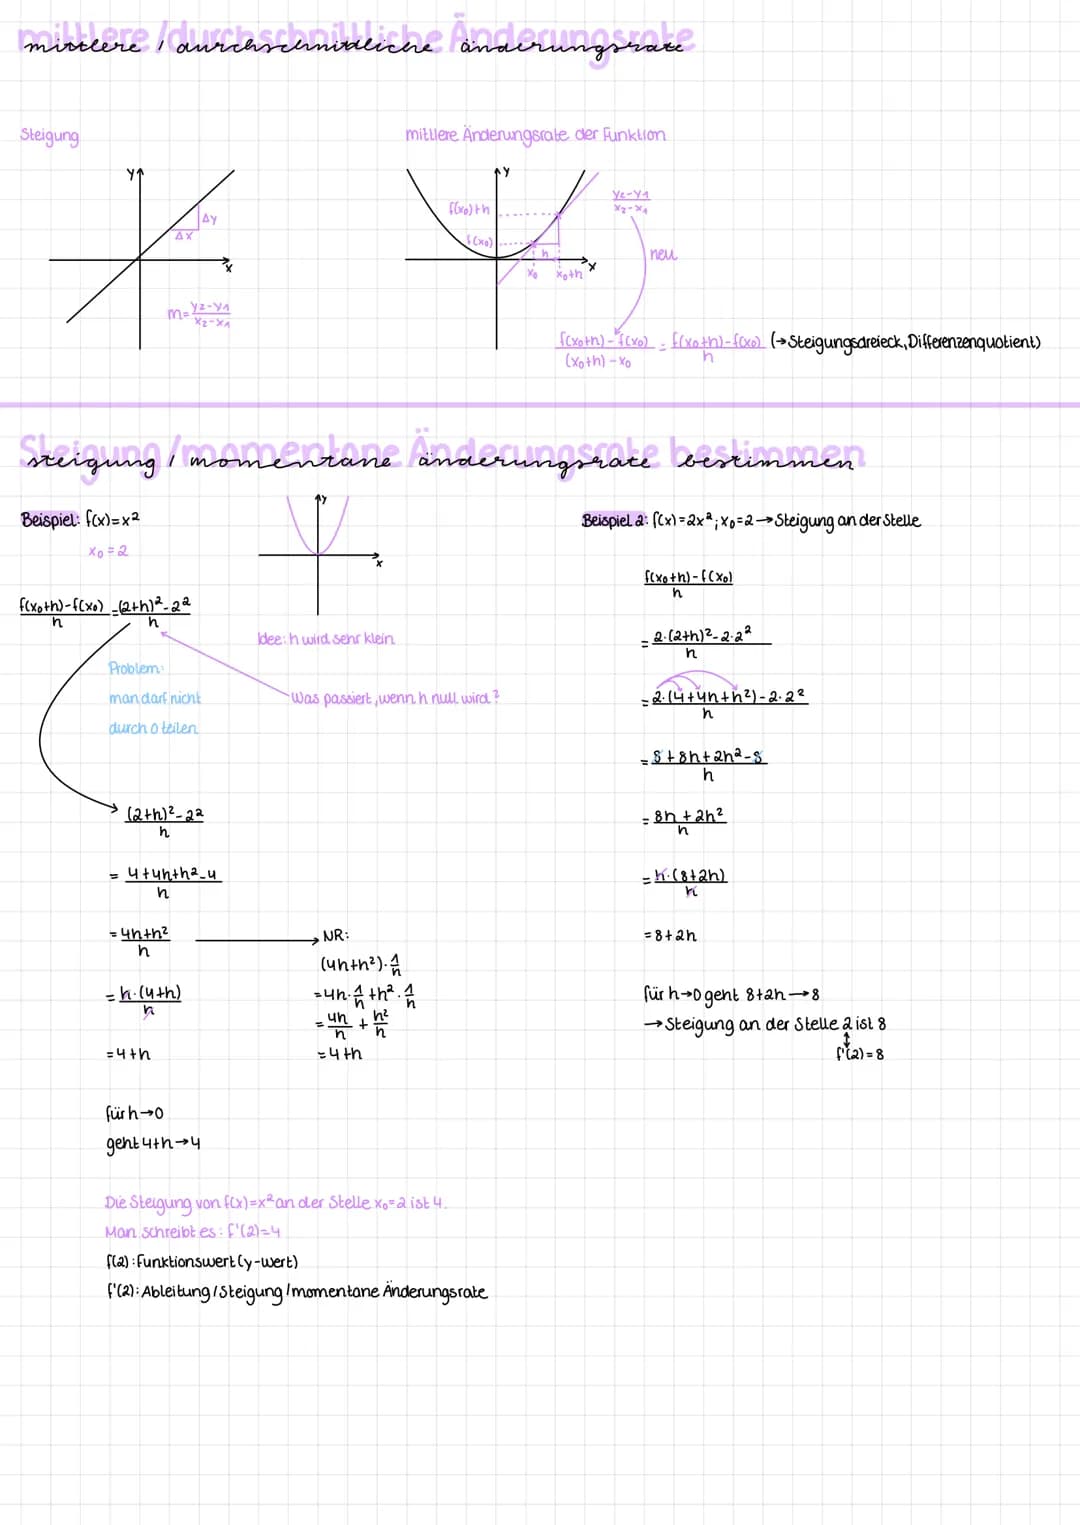 mittlere / durchschnittliche änderungsrate
Steigung
y
Δy
Δx
x
m = (y₂-y₁)/(x₂-x₁)
mittlere Änderungsrate der Funktion
y
f(x₀)+h
f(x₀)
h
x₀
x₀+h
x
(y₂-y₁)/(x₂-x₁)
neu
(f(x₀+h)-f(x₀))/((x₀+h)-x₀) = (f(x₀+h)-f(x₀))/h (→Steigungsdreieck, Differenzenquotient)
steigung / momentane änderungsrate bestimmen
Beispiel: f(x)=x²
x₀=2
y
x
(f(x₀+h)-f(x₀))/h = ((2+h)²-2²)/h
Idee: h wird sehr klein
Problem:
man darf nicht
durch 0 teilen
Was passiert, wenn h null wird?
((2+h)²-2²)/h
= (4+4h+h²-4)/h
= (4h+h²)/h
= h·(4+h)/h
=4+h
NR:
(4h+h²)·1/h
=4h·1/h+h²·1/h
=4h/h + h²/h
=4+h
für h→0
geht 4+h→4
Die Steigung von f(x)=x² an der Stelle x₀=2 ist 4.
Man schreibt es: f'(2)=4
f(2): Funktionswert (y-wert)
f'(2): Ableitung/Steigung/momentane Änderungsrate
Beispiel 2: f(x)=2x²; x₀=2→Steigung an der Stelle
(f(x₀+h)-f(x₀))/h
= (2·(2+h)²-2·2²)/h
= (2·(4+4h+h²)-2·2²)/h
= (8+8h+2h²-8)/h
= (8h+2h²)/h
= h·(8+2h)/h
=8+2h
für h→0 geht 8+2h→8
→Steigung an der Stelle 2 ist 8
f'(2)=8